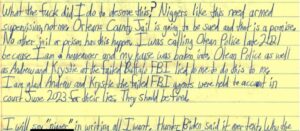 What the fuck did I do to deserve this? Niggers like this need armed
supervision, not me. Orleans County Jail is going to be sued and that is a promise.
No other jail or prison has this happen. I was calling Olean Police late 2021
because I am a and my house was broken into. Olean Police as well
as Andrew and Krystie at the Buffalo FBI lied to me to do this to me.
I am glad Andrew and Krystie the failed FBI agents were held to account in
court June 2023 for their lies. They should be fired.
I will say "nigger" in writing all I want. Hunter Biden said it in text. Why the